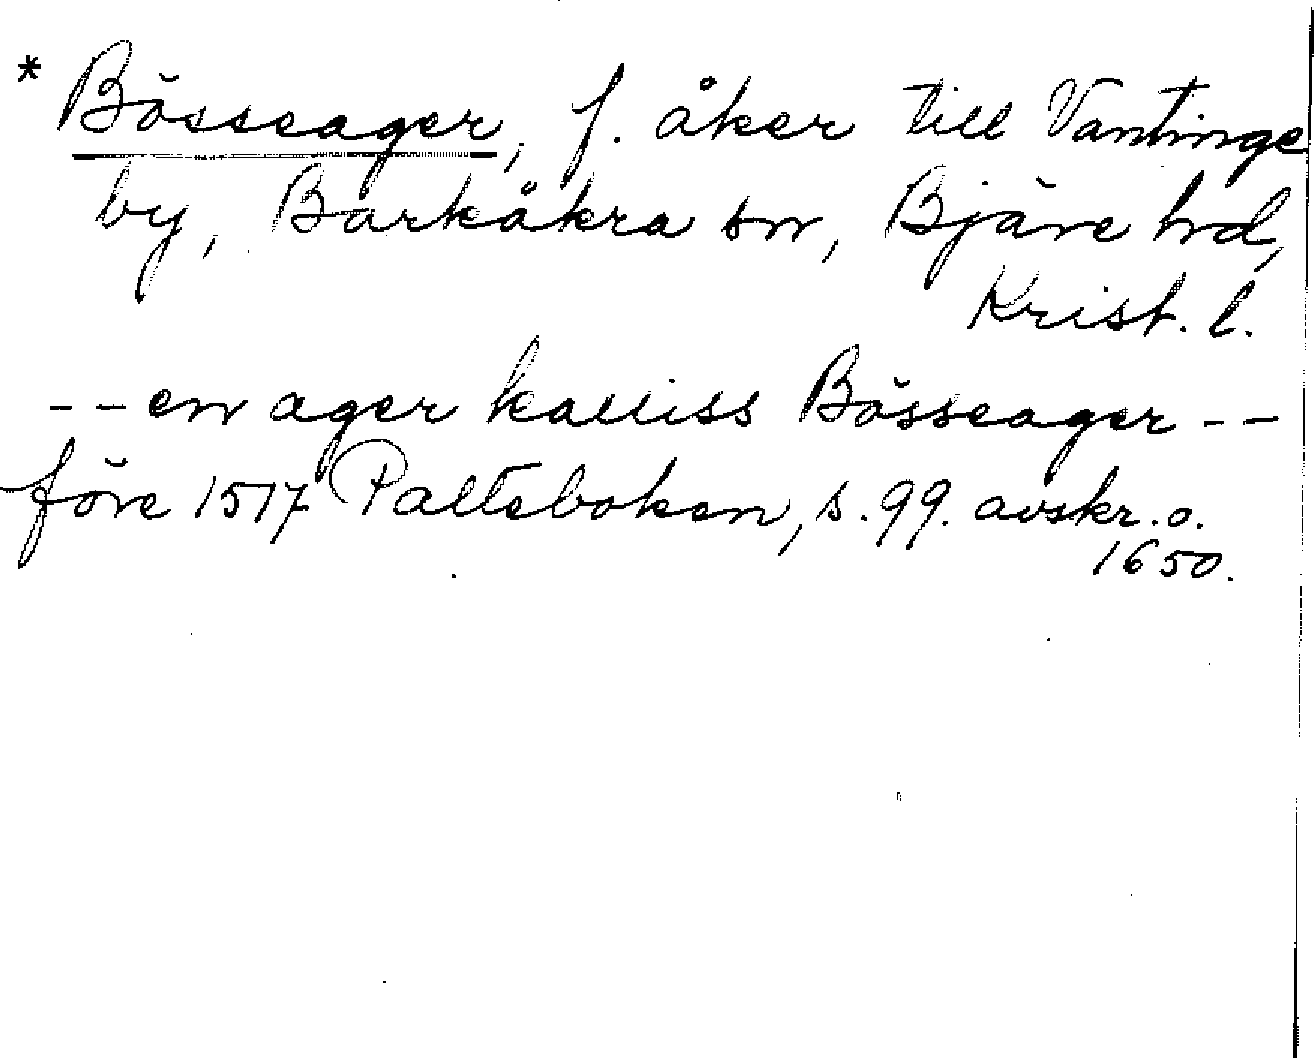 * Bösseager, f. åker till Vantinge
by, Barkåkra sn, Bjäre hrd,
Krist. l.
-- en ager kalliss Bösseager --
före 1517 Palteboken, s. 99. avskr. o.
1650.